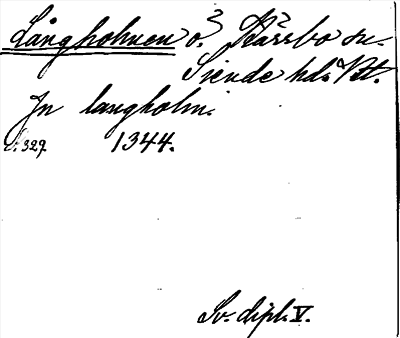 Långholmen ö. Kärrbo sn.
Siende hd. Vstl.
In langholm.
s. 329. 1344.
Sv. dipl. V.